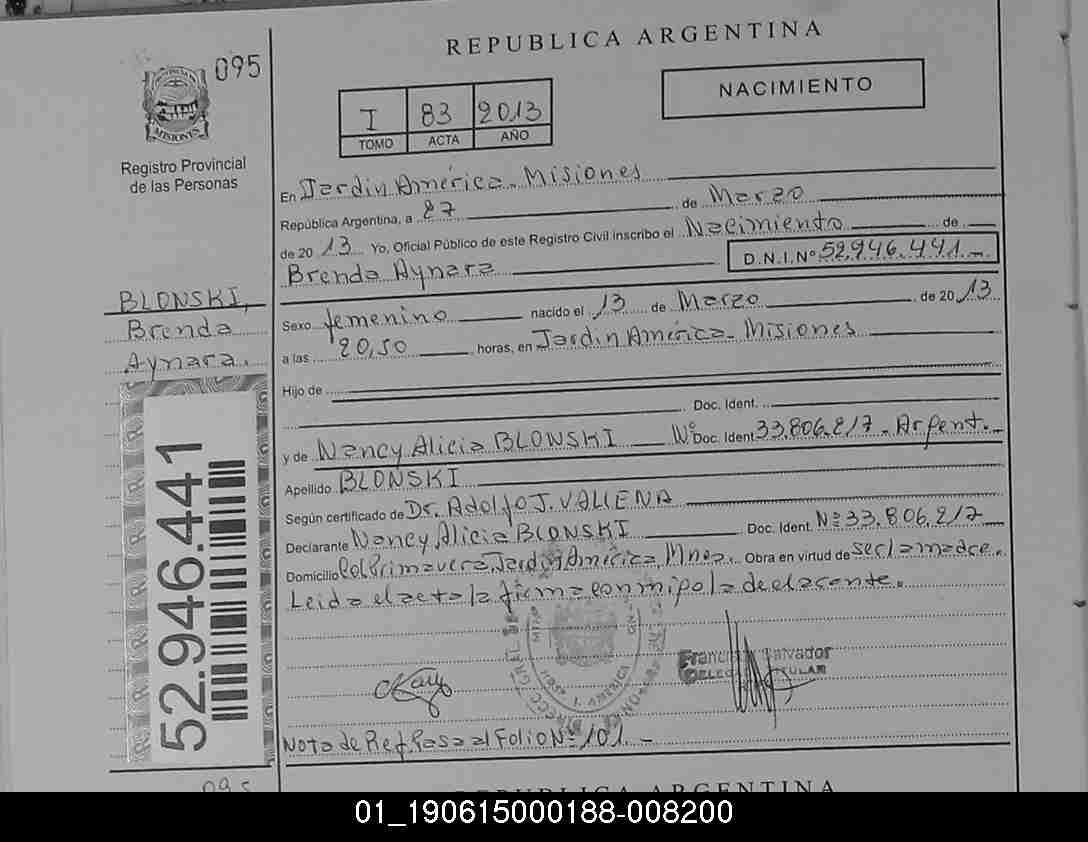 REPUBLICA ARGENTINA
095
NACIMIENTO
I 83 2013
TOMO ACTA AÑO
PROVINCIA DE MISIONES
Registro Provincial
de las Personas
En Jardin América - Misiones
República Argentina, a 27 de Marzo
de 2013 Yo, Oficial Público de este Registro Civil inscribo el Nacimiento de
Brenda Aynara D.N.I.Nº 52.946.441.-
BLONSKI,
Brenda
Aynara.
Sexo femenino nacido el 13 de Marzo de 2013
a las 20,50 horas, en Jardin América - Misiones
Hijo de
Doc. Ident.
y de Nancy Alicia BLONSKI Nº Doc. Ident 33.806.217 - Argent.-
Apellido BLONSKI
Según certificado de Dr. Adolfo J. VALLENA
Declarante Nancy Alicia BLONSKI Doc. Ident. Nº 33.806.217
Domicilio Col Primavera, Jardin América, Mnes. Obra en virtud de ser la madre.
Leida el acta la firma conmigo la declarante.
Salvador
Nota de Ref. Pasa al Folio Nº 101.-
52.946.441
REPUBLICA ARGENTINA
01_190615000188-008200